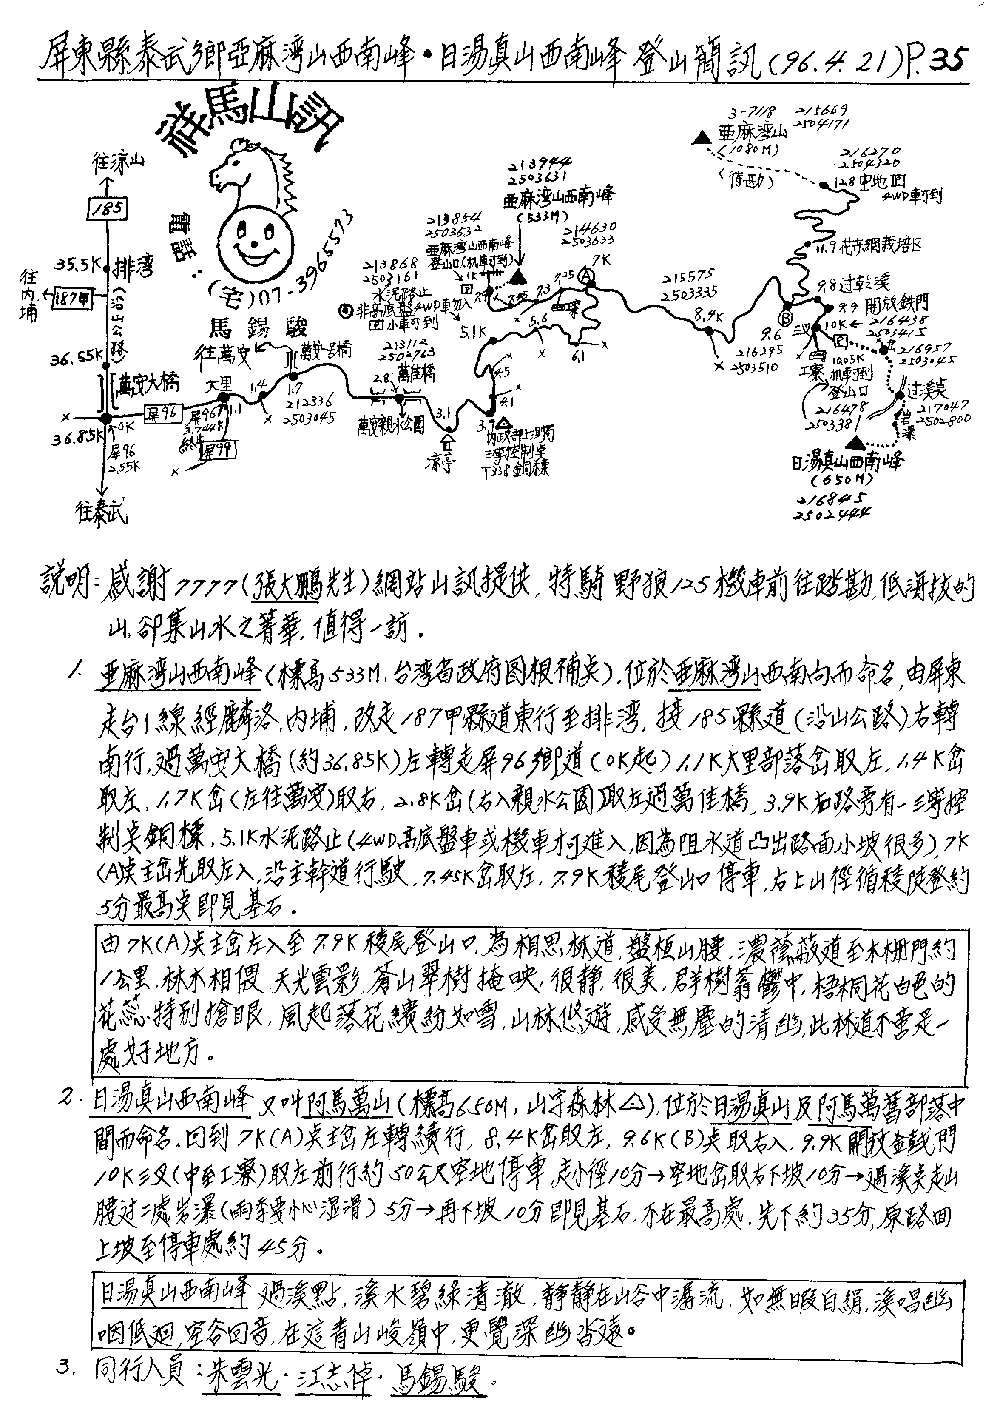 屏東縣泰武鄉亞麻湾山西南峰・日湯真山西南峰 登山簡訊(96.4.21)P.35
祥馬山訊
電話:(宅)07-3965573
馬錫駿
往涼山
185
35.5K 排湾
往內埔
187甲
(沿山公路)
36.55K
萬安大橋
36.85K
0K
屏96
2.55K
往泰武
屏96
大里
1.1
1.4
往萬安
1.7
212336
2503045
2.8
213112
2502763
萬佳橋
萬安親水公園
3.1
涼亭
4.1
4.5
5.1K
213868
2503161
水泥路止
非高底盤4WD車勿入
213854
2503632
亞麻湾山西南峰
登山口(机車可到)
213944
2503631
亞麻湾山西南峰
(533M)
5.6
6.1
214630
2503633
A
7K
215575
2503335
8.4K
9.6
216295
2503510
B
9.8 过乾溪
9.9 開放鉄門
10K
216436
2503415
工寮
10.05K
机車可到
登山口
216478
2503381
216957
2503045
过溪点
217047
2502800
岩瀑
日湯真山西南峰
(650M)
216845
2502444
3-7118
215669
2504171
亞麻湾山
(1080M)
(待勘)
216270
2504320
12.8 空地
4WD車可到
說明:感謝7777(張大鵬先生)網站山訊提供,特騎野狼125機車前往踏勘,低海拔的
山,卻集山水之菁華,值得一訪.
1. 亞麻湾山西南峰(標高533M,台湾省政府图根補点),位於亞麻湾山西南向而命名,由屏東
走台1線經麟洛,內埔,改走187甲縣道東行至排湾,接185縣道(沿山公路)右轉
南行,過萬安大橋(約36.85K)左轉走屏96鄉道(0K起)1.1K大里部落岔取左,1.4K岔
取左,1.7K岔(左往萬安)取右,2.8K岔(右入親水公園)取左過萬佳橋,3.9K右路旁有一三等控
制点銅標,5.1K水泥路止(4WD高底盤車或機車才可進入,因為阻水道凸出路面小坡很多),7K
(A)点主岔先取左入,沿主幹道行駛,7.45K岔取左,7.9K稜尾登山口停車,右上山徑循稜陡登約
5分最高点即見基石.
由7K(A)点主岔左入至7.9K稜尾登山口,為相思林道,盤桓山腰,濃蔭蔽道至木柵門約
1公里,林木相偎,天光雲影,蒼山翠樹掩映,很靜,很美,群樹蓊鬱中,梧桐花白色的
花蕊,特別搶眼,風起落花繽紛如雪,山林悠遊,感受無塵的清幽,此林道不啻是一
處好地方。
2. 日湯真山西南峰又叫阿馬萬山(標高650M,山字森林△),位於日湯真山及阿馬萬舊部落中
間而命名.回到7K(A)点主岔左轉續行,8.4K岔取左,9.6K(B)点取右入,9.9K開放鉄門
10K三叉(中至工寮)取左前行約50公尺空地停車,走小徑10分→空地岔取右下坡10分→過溪点走山
腰过二處岩瀑(雨季要小心溼滑)5分→再下坡10分即見基石,不在最高處,先下約35分,原路回
上坡至停車處約45分.
日湯真山西南峰過溪點,溪水碧綠清澈,靜靜在山谷中潺流,如無暇白絹,溪唱幽
咽低迴,空谷回音,在這青山峻嶺中,更覺深幽杳遠。
3. 同行人員:朱雲光・江志倬・馬錫駿.